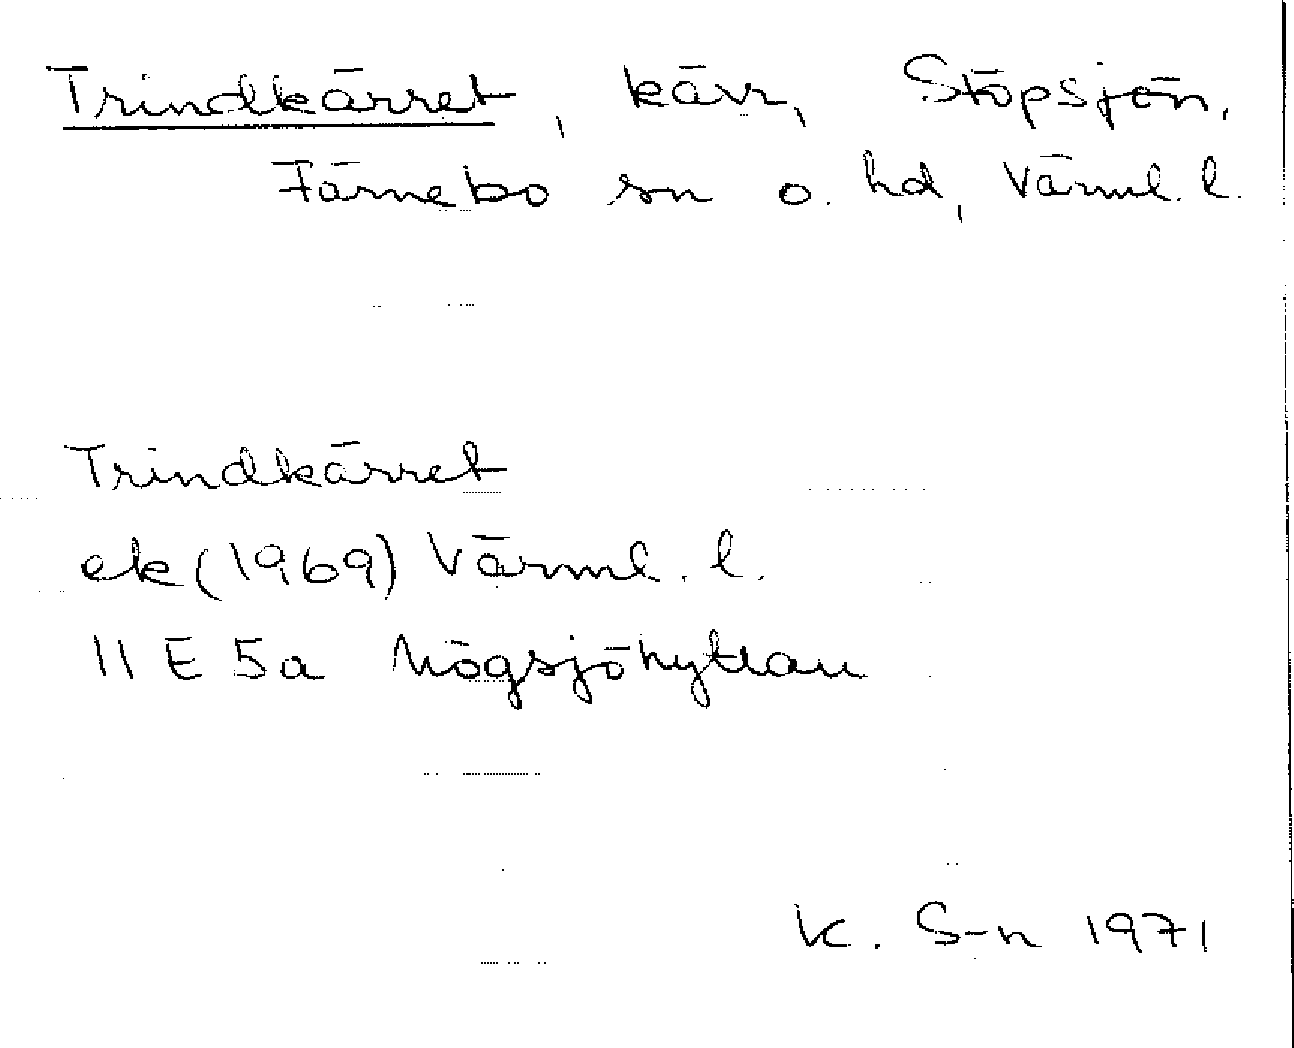 Trindkärret, kärr, Stöpsjön,
Färnebo sn o. hd, Värml. l.
Trindkärret
ek (1969) Värml. l.
11 E 5a Högsjöhyttan
K. S-n 1971